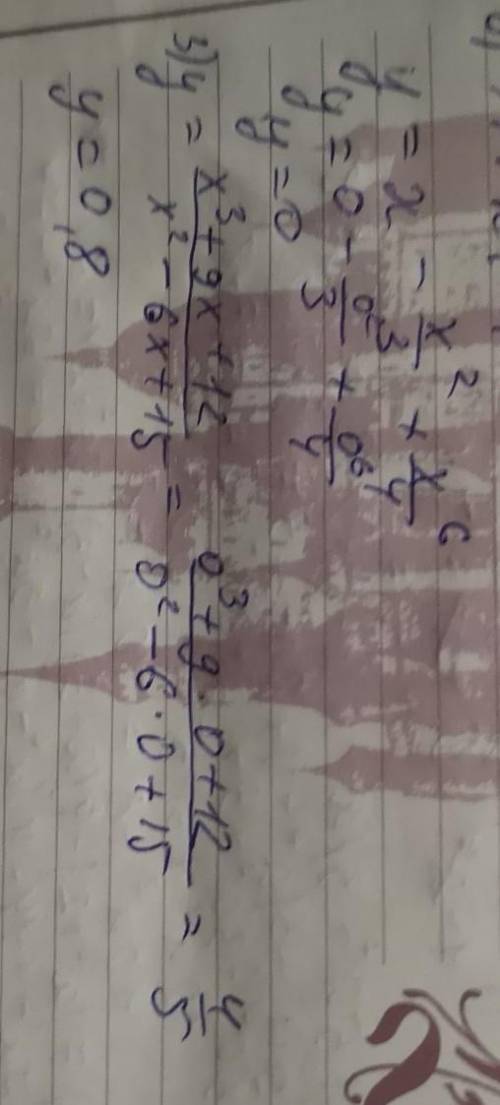 y = x - x²/3 + x⁶/4
y = 0 - 0²/3 + 0⁶/4
y = 0
3) y = (x³ + 9x + 12)/(x² - 6x + 15) = (0³ + 9 · 0 + 12)/(0² - 6 · 0 + 15) = 4/5
y = 0,8